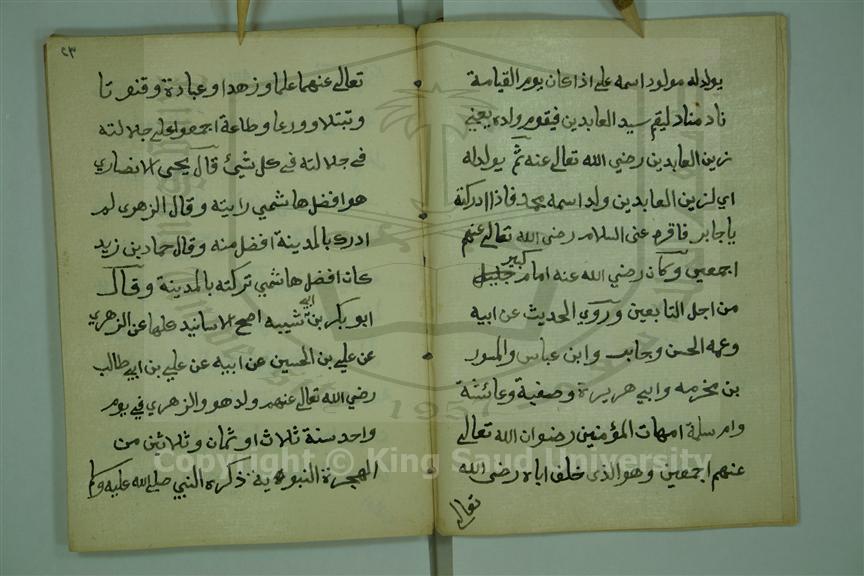 يولد له مولود اسمه علي اذا كان يوم القيامة
ناد مناد ليقم سيد العابدين فيقوم ولده يعني
زين العابدين رضي الله تعالى عنه ثم يولد له
اي لزين العابدين ولد اسمه محمد فاذا ادركته
يا جابر فاقره عني السلام رضي الله تعالى عنهم
اجمعين وكان رضي الله عنه امام كبير جليل
من اجل التابعين وروي الحديث عن ابيه
وعمه الحسن وجابر وابن عباس والمسور
بن مخرمه وابي هريرة وصفية وعائشة
وام سلمة امهات المؤمنين رضوان الله تعالى
عنهم اجمعين وهو الذي خلف اباه رضي الله
تعالى
٢٣
تعالى عنهما علما وزهدا وعبادة وقنوتا
وتبتلا وورعا وطاعة اجمعوا على جلالته
في جلالته في كل شيئ قال يحيى الانصاري
هو افضل هاشمي رايته وقال الزهري لم
ادرك بالمدينة افضل منه وقال حماد بن زيد
كان افضل هاشمي تركته بالمدينة وقال
ابو بكر بن ابي شيبه اصح الاسانيد كلها عن الزهري
عن علي بن الحسين عن ابيه عن علي بن ابي طالب
رضي الله تعالى عنهم ولد هو والزهري في يوم
واحد سنة ثلاث او ثمان وثلاثين من
الهجرة النبوية ذكره النبي صلى الله عليه وسلم
Copyright © King Saud University
1957